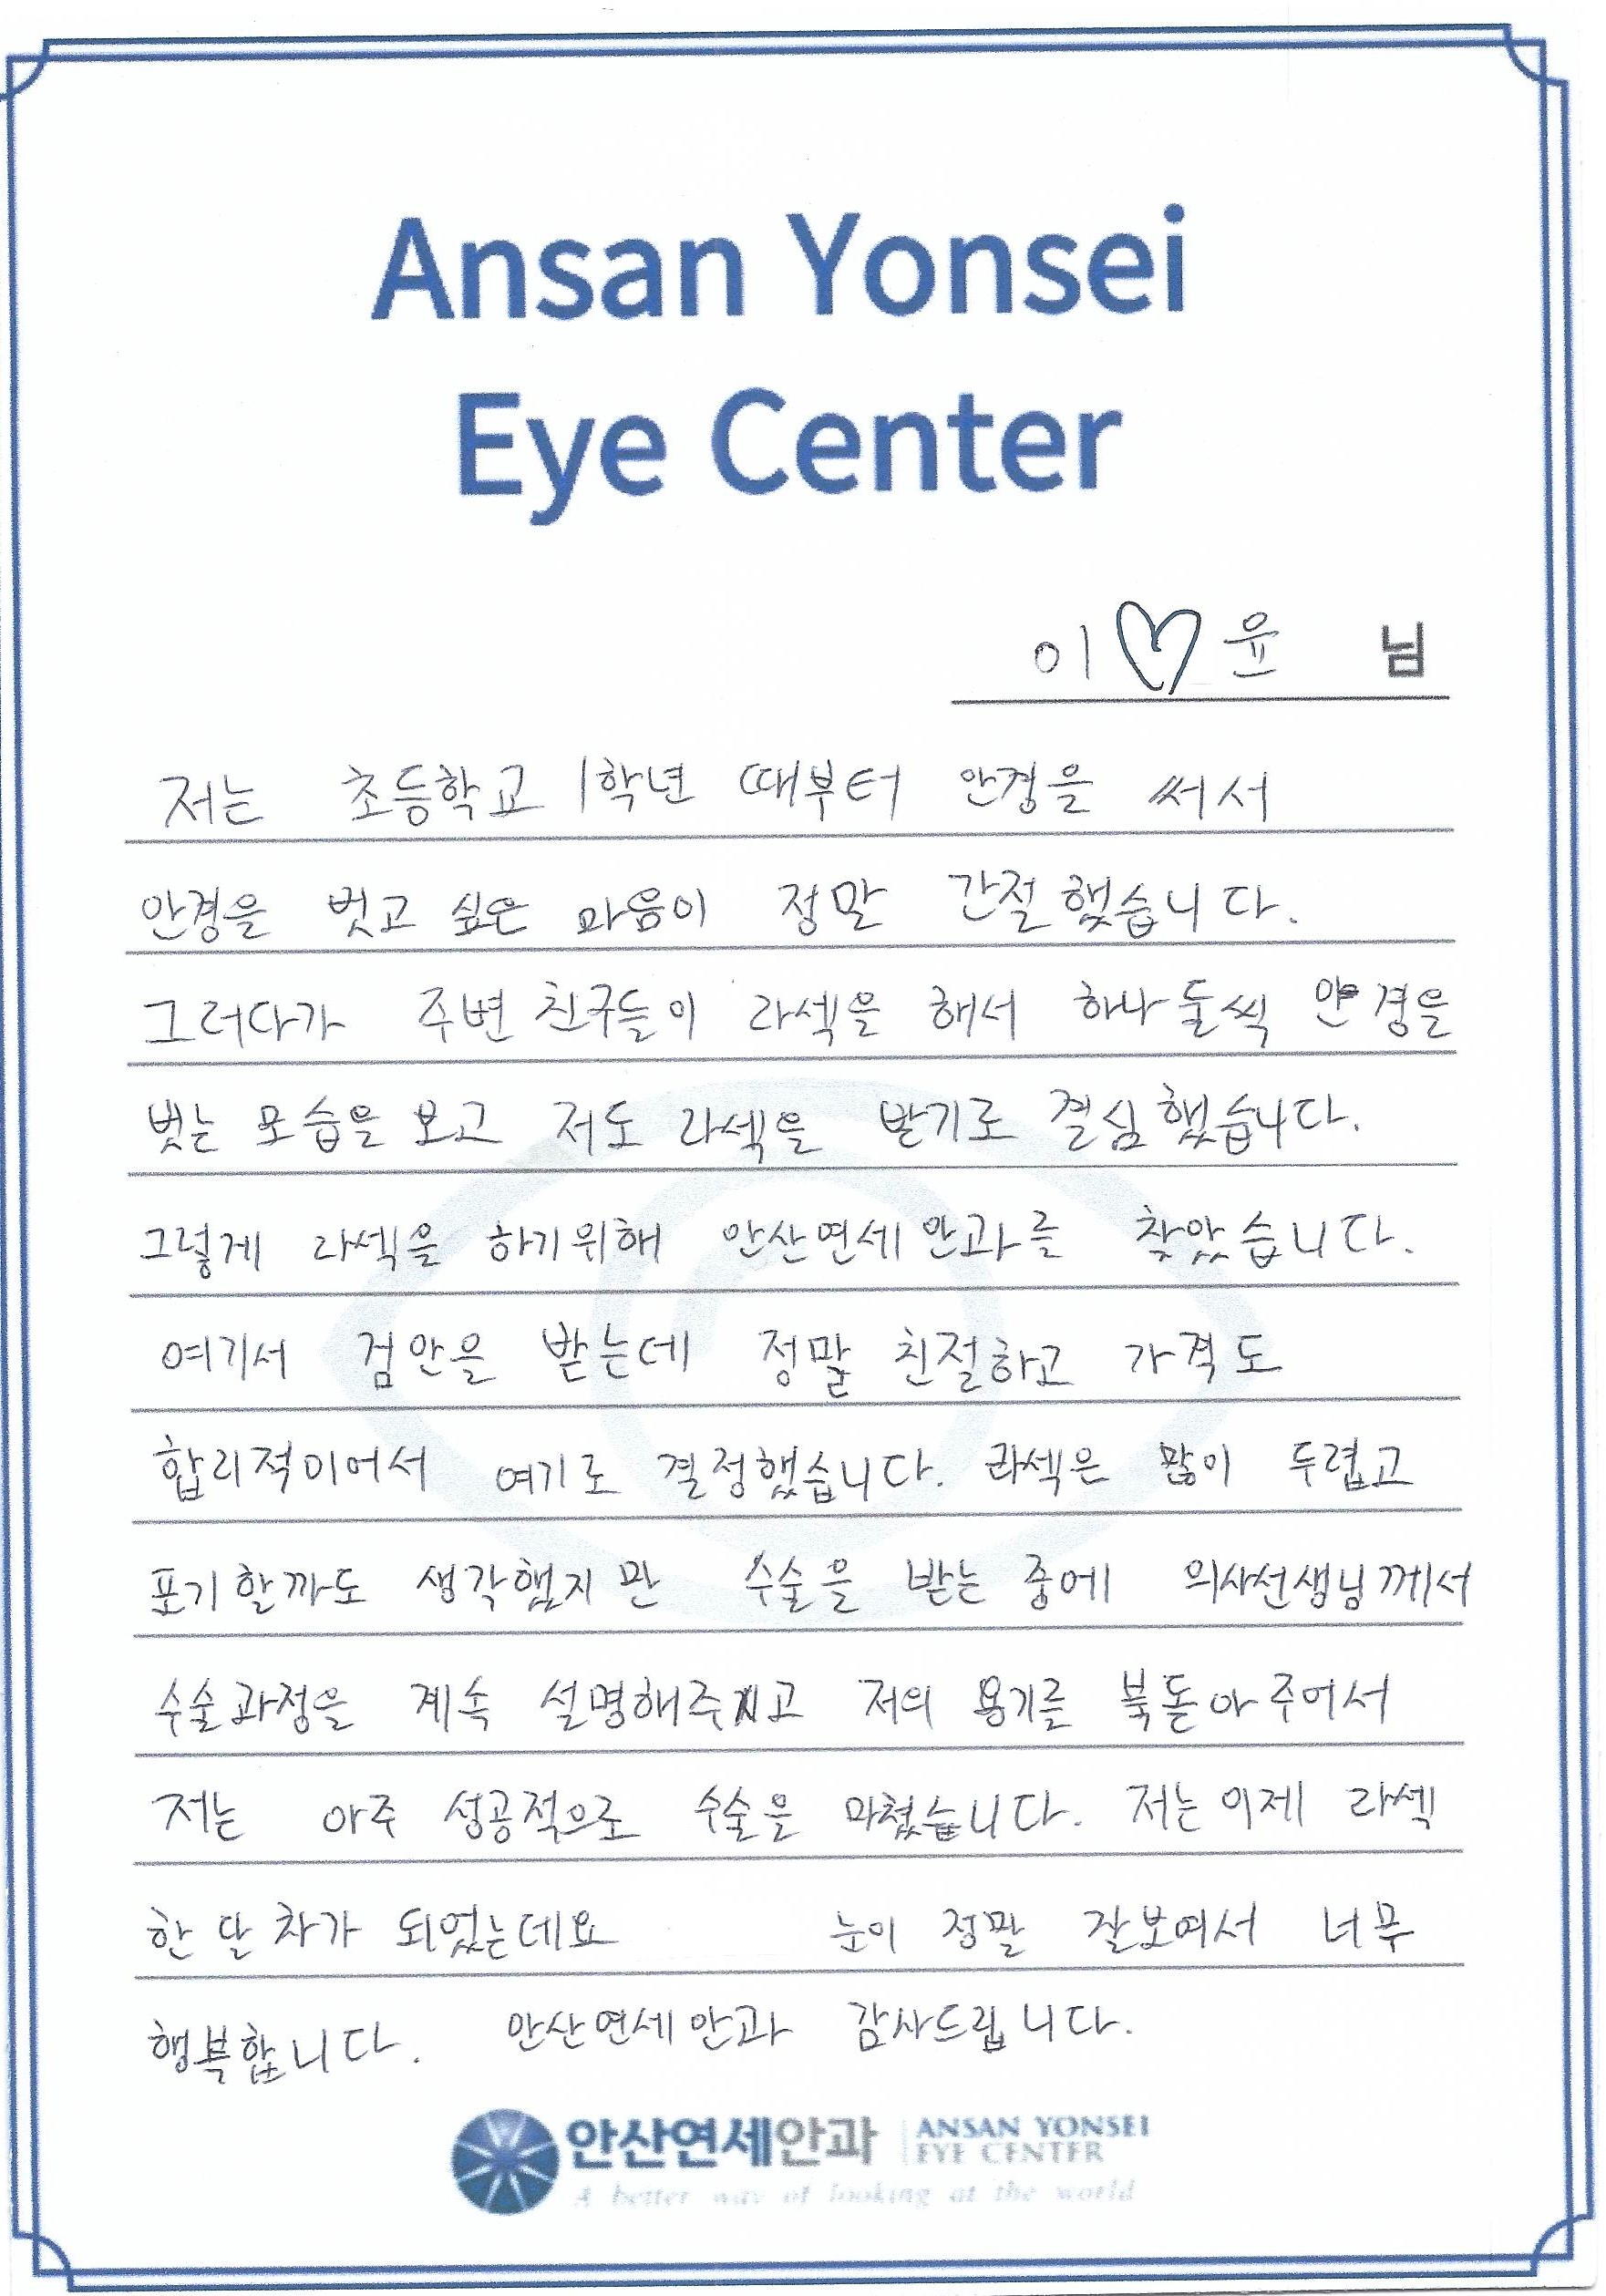 Ansan Yonsei
Eye Center
이♡윤 님
저는 초등학교 1학년 때부터 안경을 써서
안경을 벗고 싶은 마음이 정말 간절했습니다.
그러다가 주변 친구들이 라섹을 해서 하나 둘씩 안경을
벗는 모습을 보고 저도 라섹을 받기로 결심했습니다.
그렇게 라섹을 하기위해 안산연세안과를 찾았습니다.
여기서 검안을 받는데 정말 친절하고 가격도
합리적이어서 여기로 결정했습니다. 라섹은 많이 두렵고
포기할까도 생각했지만 수술을 받는 중에 의사선생님께서
수술과정을 계속 설명해주시고 저의 용기를 북돋아 주어서
저는 아주 성공적으로 수술을 마쳤습니다. 저는 이제 라섹
한 달 차가 되었는데요 눈이 정말 잘보여서 너무
행복합니다. 안산연세안과 감사드립니다.
안산연세안과 ANSAN YONSEI
EYE CENTER
A better way of looking at the world